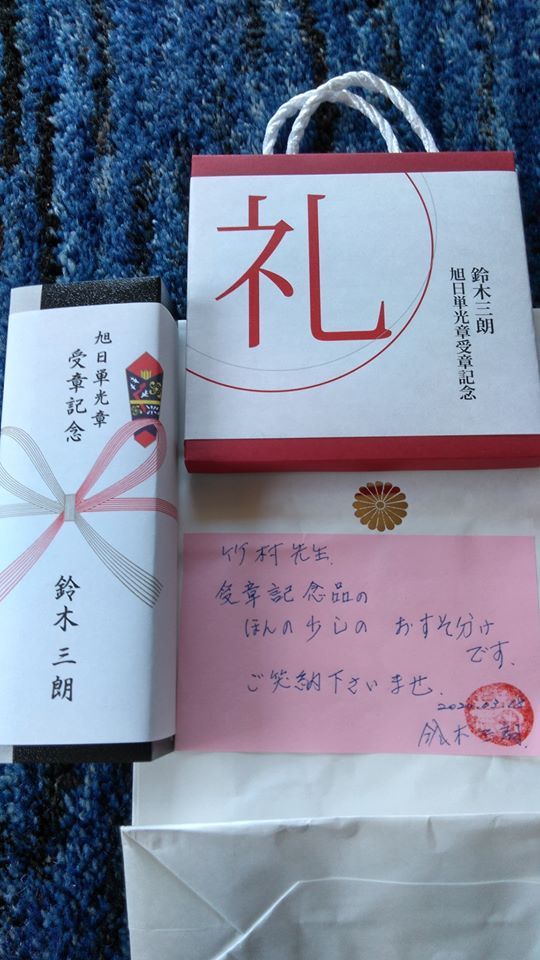 礼
鈴木三朗
旭日単光章受章記念
旭日単光章
受章記念
鈴木三朗
竹村先生.
受章記念品の
ほんの少しの おすそ分け
です.
ご笑納下さいませ.
鈴木三朗